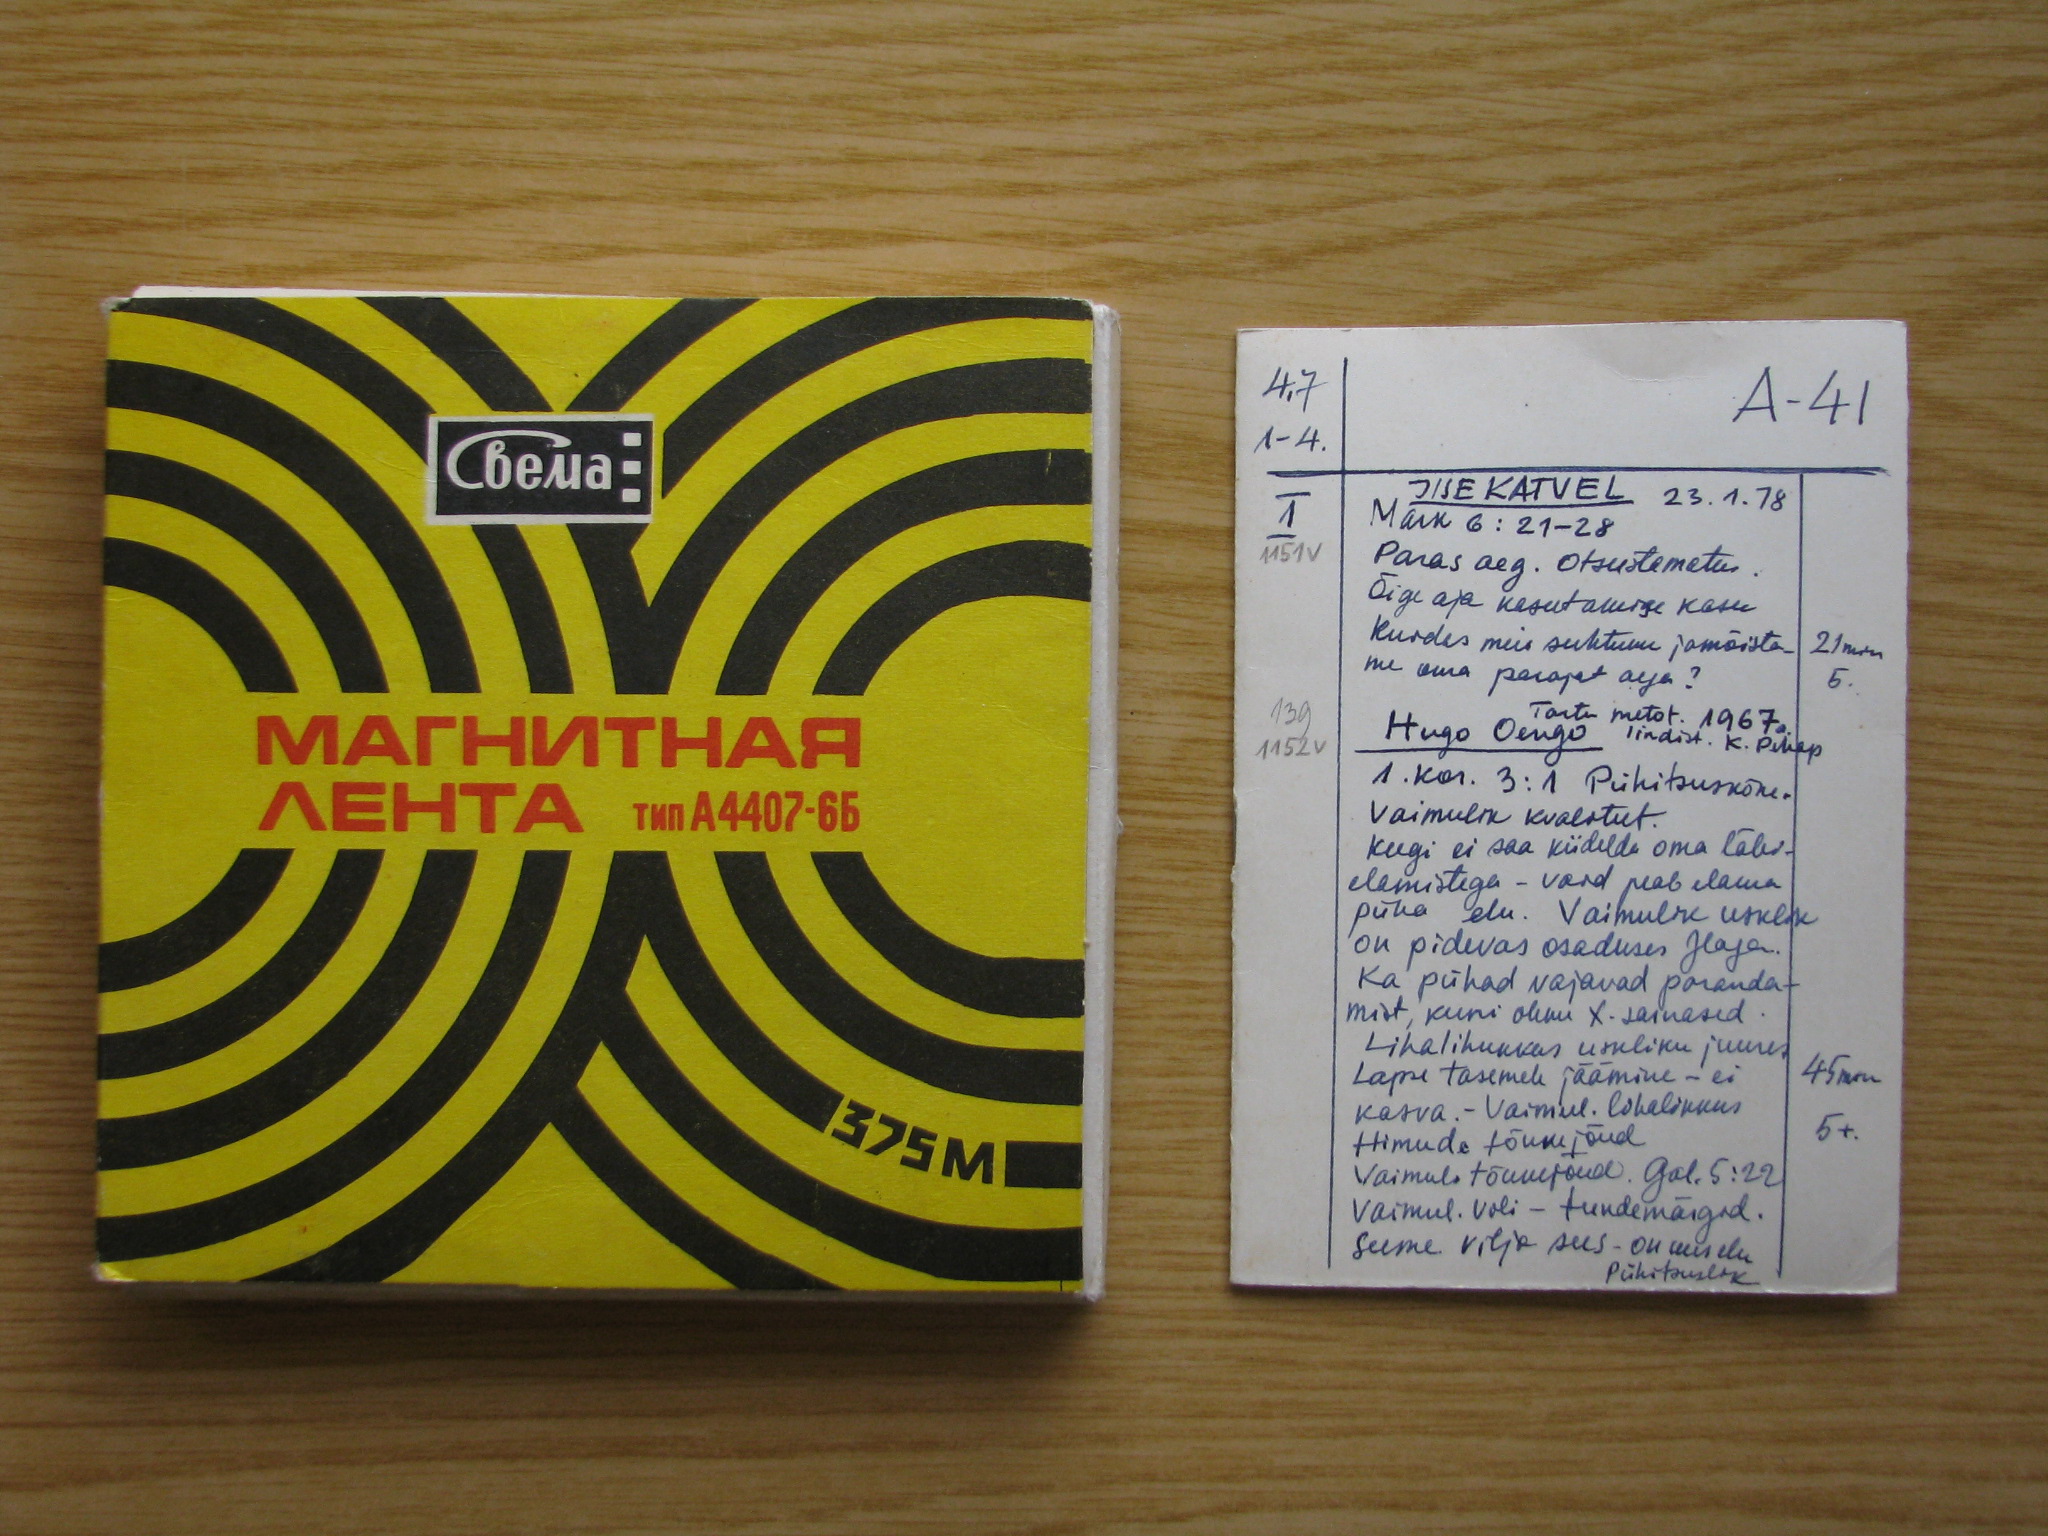 Свема
МАГНИТНАЯ
ЛЕНТА тип А4407-6Б
375М
4,7
1-4.
A-41
I
1151v
KATVEL 23.1.78
Mark 6:21-28
Paras aeg. Otsustamatus.
Õige aja kasutamise kasu
Kuidas meie suhtume ja mõista-
me oma parajat aega?
21 min
5.
139
1152v
Tartu metod. 1967a.
Hugo Oengo lindist. K.
1. Kor. 3:1 Pühitsuskõne.
Vaimulik kvaliteet.
Keegi ei saa kiidelda oma läbi-
elamistega - vaid peab elama
püha elu. Vaimulik usklik
on pidevas osaduses Jlaga.
Ka pühad vajavad paranda-
mist, kuni oleme X-sarnased.
Lihalikkus uskliku juures
Lapse tasemele jäämine - ei
kasva. - Vaimul. lihalikkus
Himude tõukejõud
Vaimule tõukejõud. Gal. 5:22
Vaimul. vili - tundemärgid.
Seeme vilja sees - on uus elu
Pühitsuslik
45 min
5+.